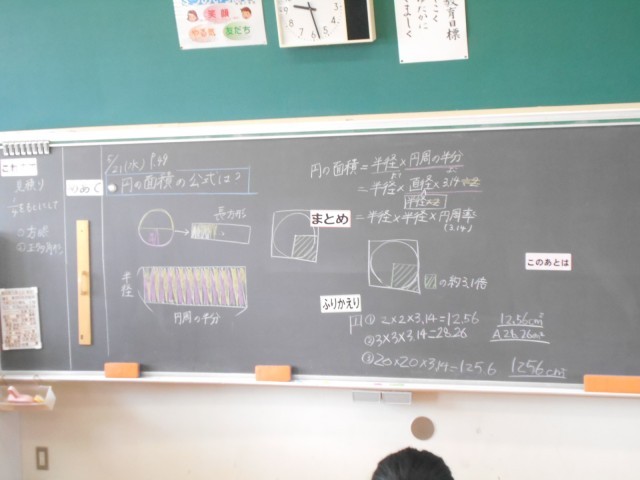 笑顔
やる気
友だち
教育目標
5/21(水) P.48
めあて
円の面積の公式は?
長方形
半径
円周の半分
円の面積 = 半径 × 円周の半分
= 半径 × 直径 × 3.14 ÷ 2
半径×2
まとめ
= 半径 × 半径 × 円周率
(3.14)
の約3.1倍
このあとは
ふりかえり
1 ① 2×2×3.14=12.56 12.56cm²
② 3×3×3.14=28.26 A 28.26cm²
③ 20×20×3.14=1256 1256cm²
見積り